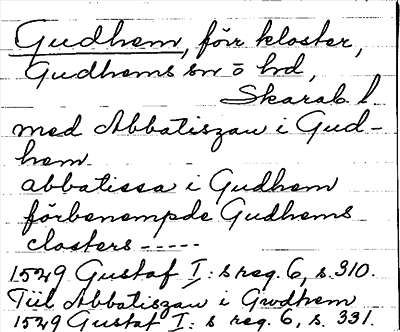 Gudhem, förr kloster,
Gudhems sn o hd,
Skarab. l.
med Abbatiszan i Gud-
hem
abbatissa i Gudhem
förbenempde Gudhems
closters -----
1529 Gustaf I: s reg. 6, s. 310.
Tiil Abbatiszan i Gwdhem
1529 Gustaf I: s reg. 6, s. 331.